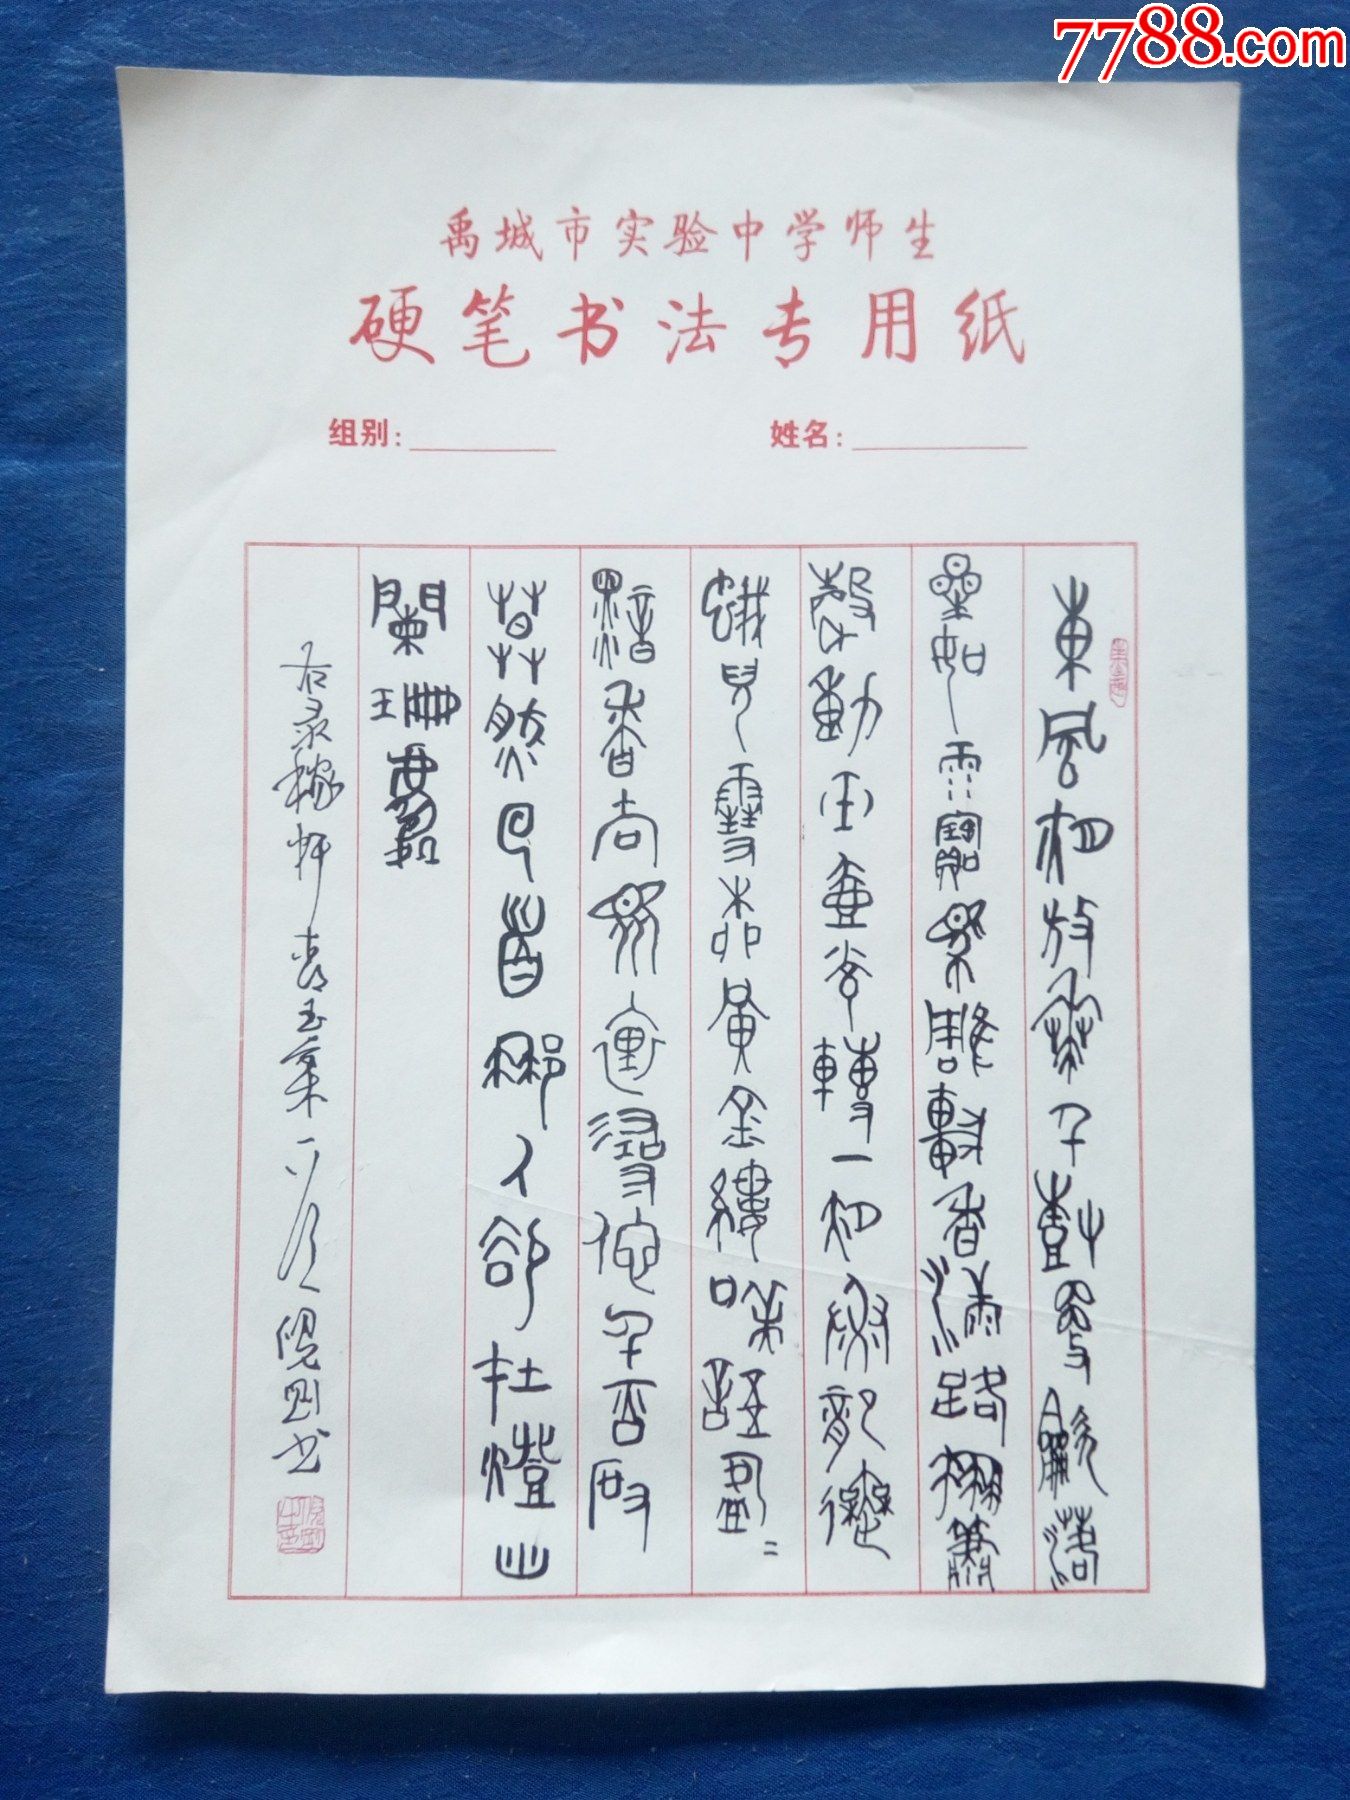 7788.com
禹城市实验中学师生
硬笔书法专用纸
组别：
姓名：
東風夜放華千樹更龡落
星如雨寶馬雕車香滿路鳳簫
聲動玉壺光轉一夜魚龍舞
蛾兒雪柳黃金縷咲語盈=
黯香去眾裡尋他千百度
驀然回首那人卻在燈火
闌珊處
右录稼轩青玉案一阕 书